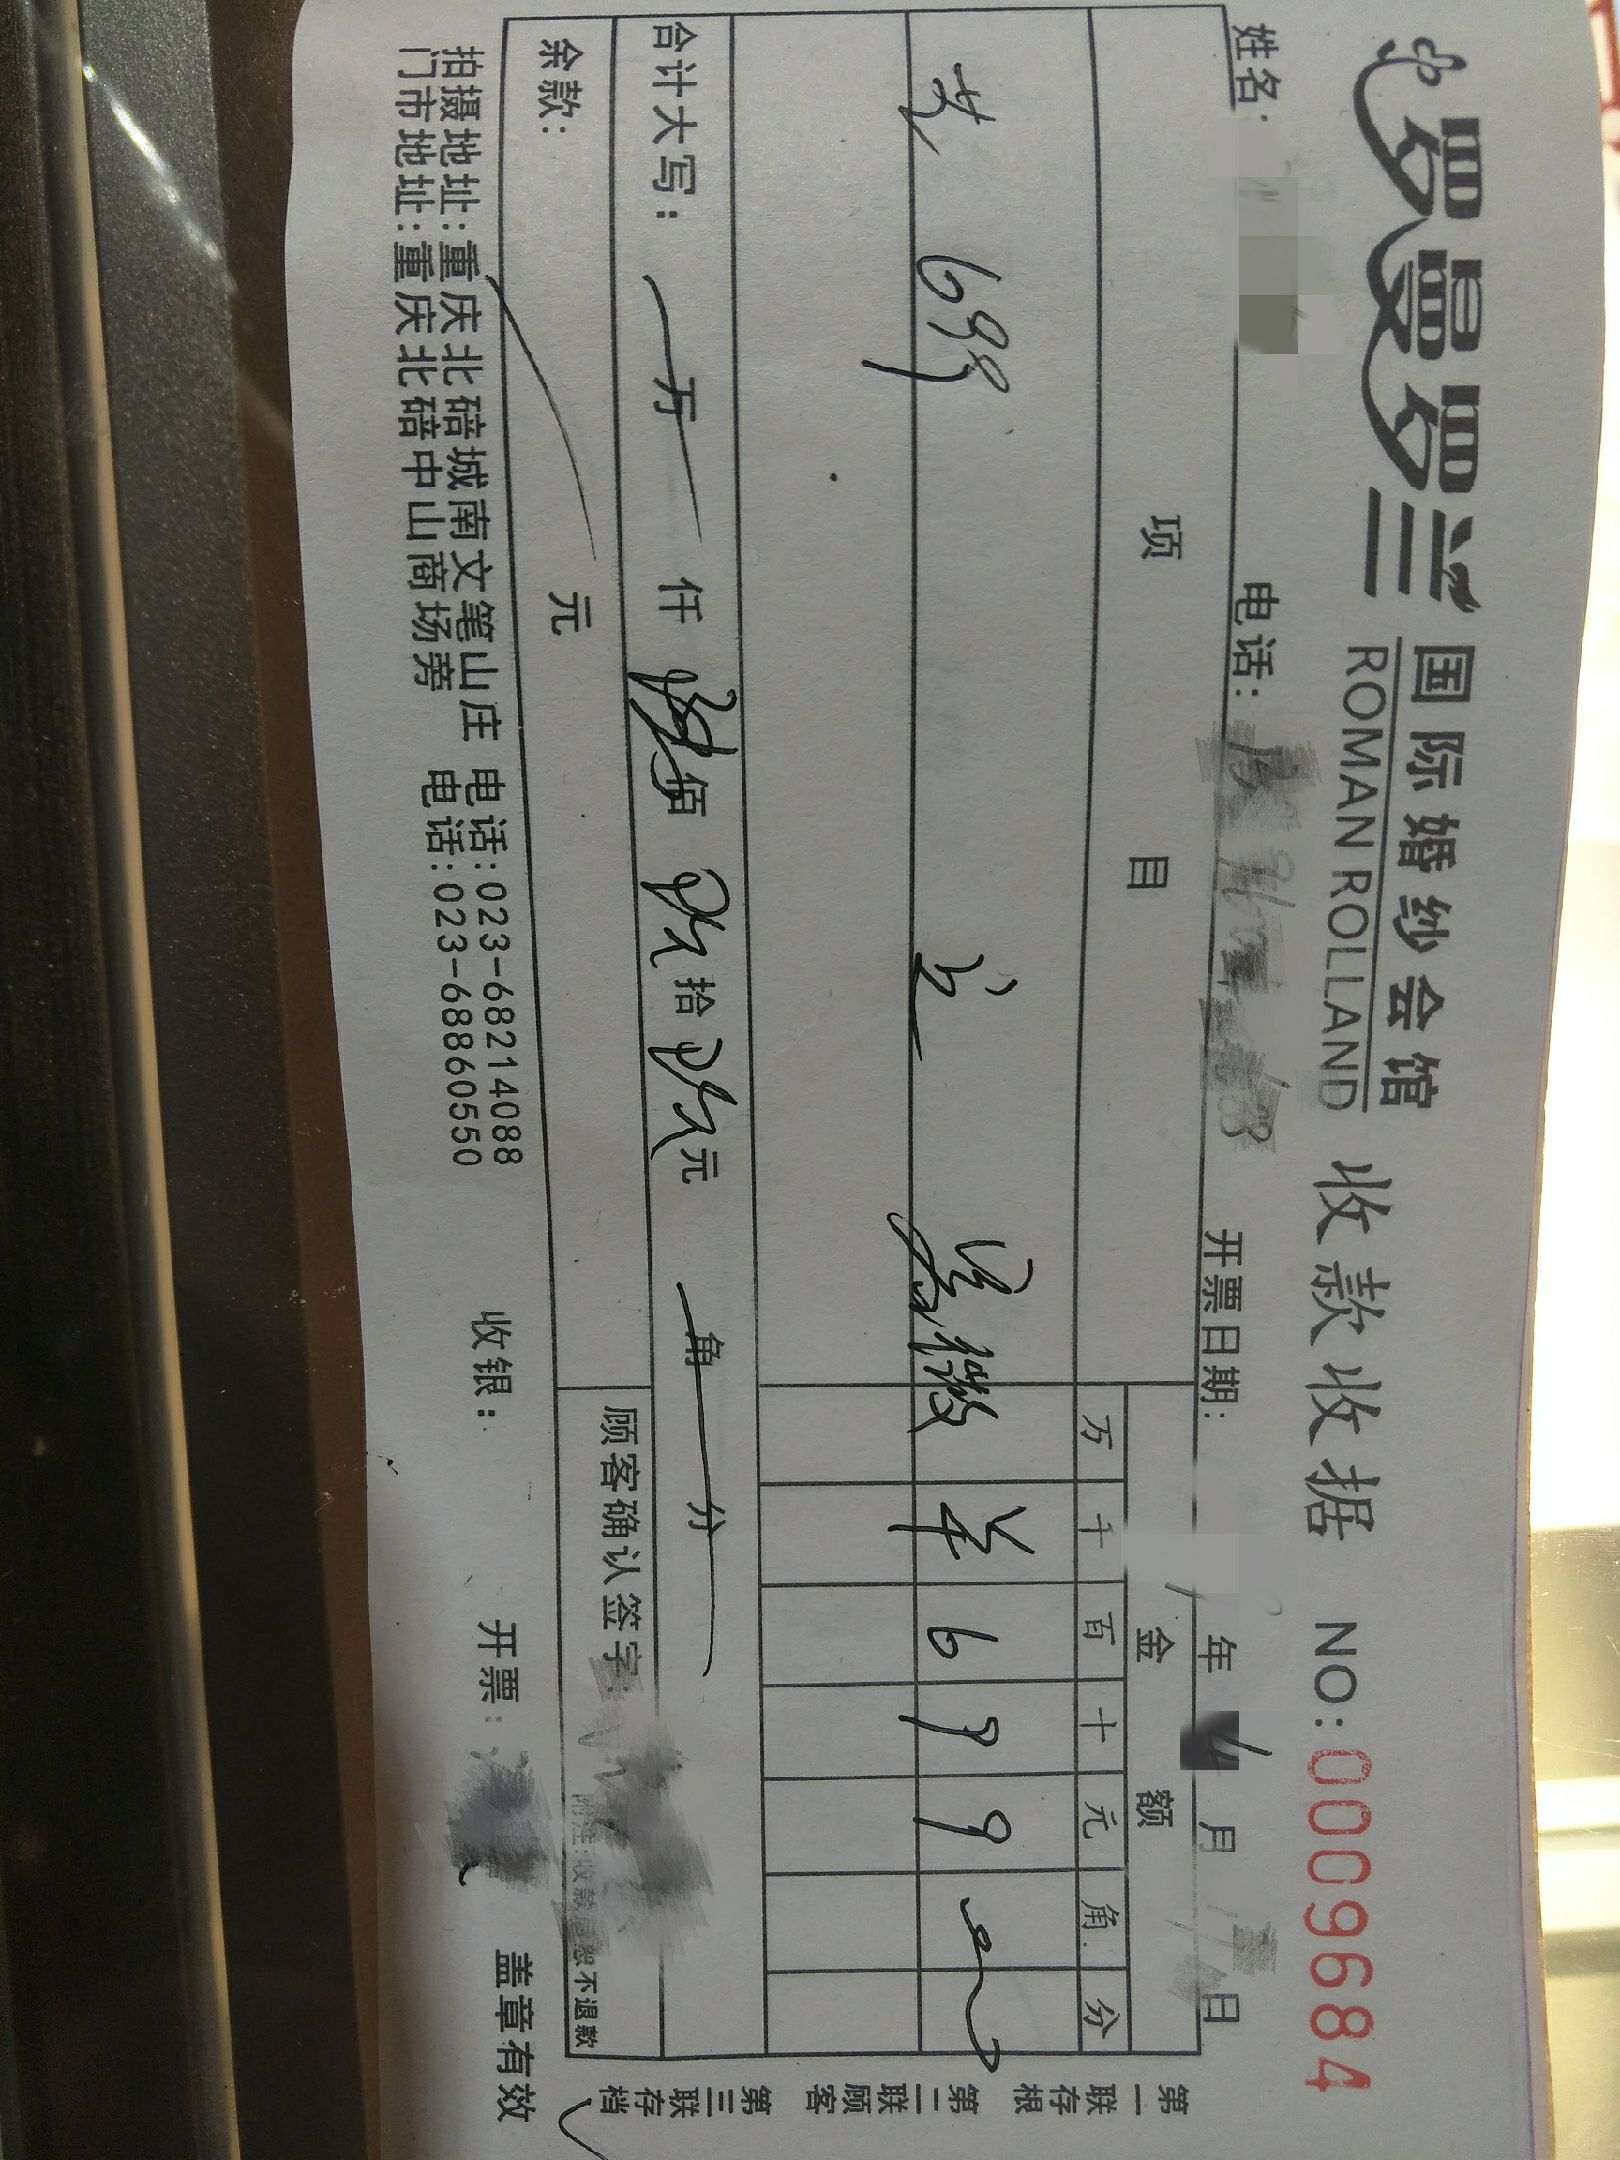 罗曼罗兰 国际婚纱会馆 收款收据 NO:0009684
ROMAN ROLLAND
姓名: 电话: 开票日期: 年 4 月 日
项 目 金 额
万 千 百 十 元 角 分
699 薇 ¥ 6 9 9
合计大写: 万 仟 陆 佰 玖 拾 玖 元 角 分
余款: 元 顾客确认签字
附注:收款后恕不退款
拍摄地址:重庆北碚城南文笔山庄 电话:023-68214088
门市地址:重庆北碚中山商场旁 电话:023-68860550
收银: 开票: 盖章有效
第一联存根
第二联顾客
第三联存档